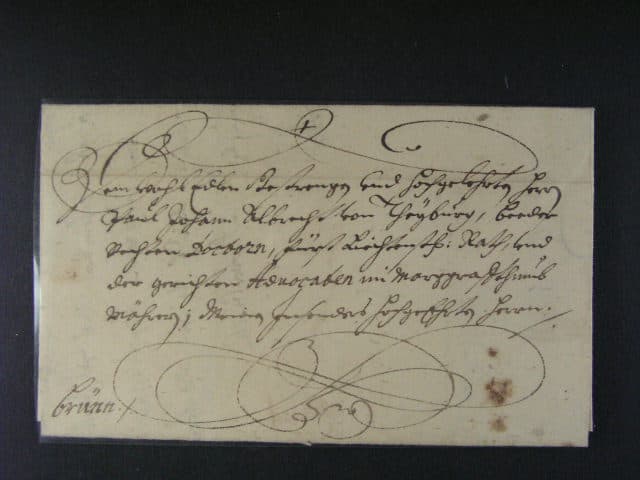 Dem Wohl Edlen Gestrengen und Hochgelehrten Herrn
Paul Johann Albrecht von Theyburg, beeder
Rechten Doctorn, fürst Liechtenst: Rath, und
der gerichten Advocaten im Marggraffthumb
Mähren; Meinen hochgeehrten Herrn.
brünn